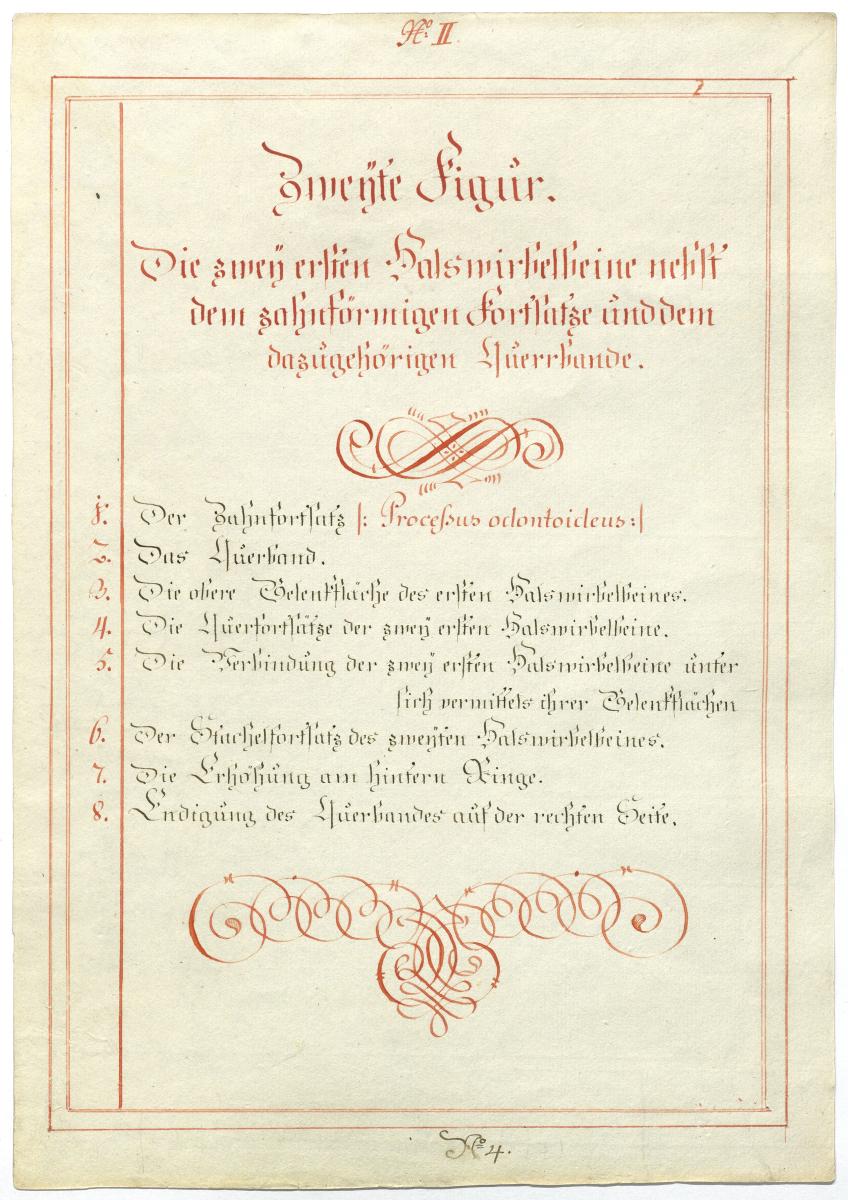 No. II.
2
Zweÿte Figur.
Die zweÿ ersten Halswirbelbeine nebst
dem zahnförmigen Fortsatze und dem
dazugehörigen Querrbande.
1. Der Zahnfortsatz |: Processus odontoideus :|
2. Das Querband.
3. Die obere Gelenkfläche des ersten Halswirbelbeines.
4. Die Querfortsätze der zweÿ ersten Halswirbelbeine.
5. Die Verbindung der zweÿ ersten Halswirbelbeine unter
sich vermittels ihrer Gelenkflächen
6. Der Stachelfortsatz des zweÿten Halswirbelbeines.
7. Die Erhöhung am hintern Ringe.
8. Endigung des Querbandes auf der rechten Seite.
No. 4.